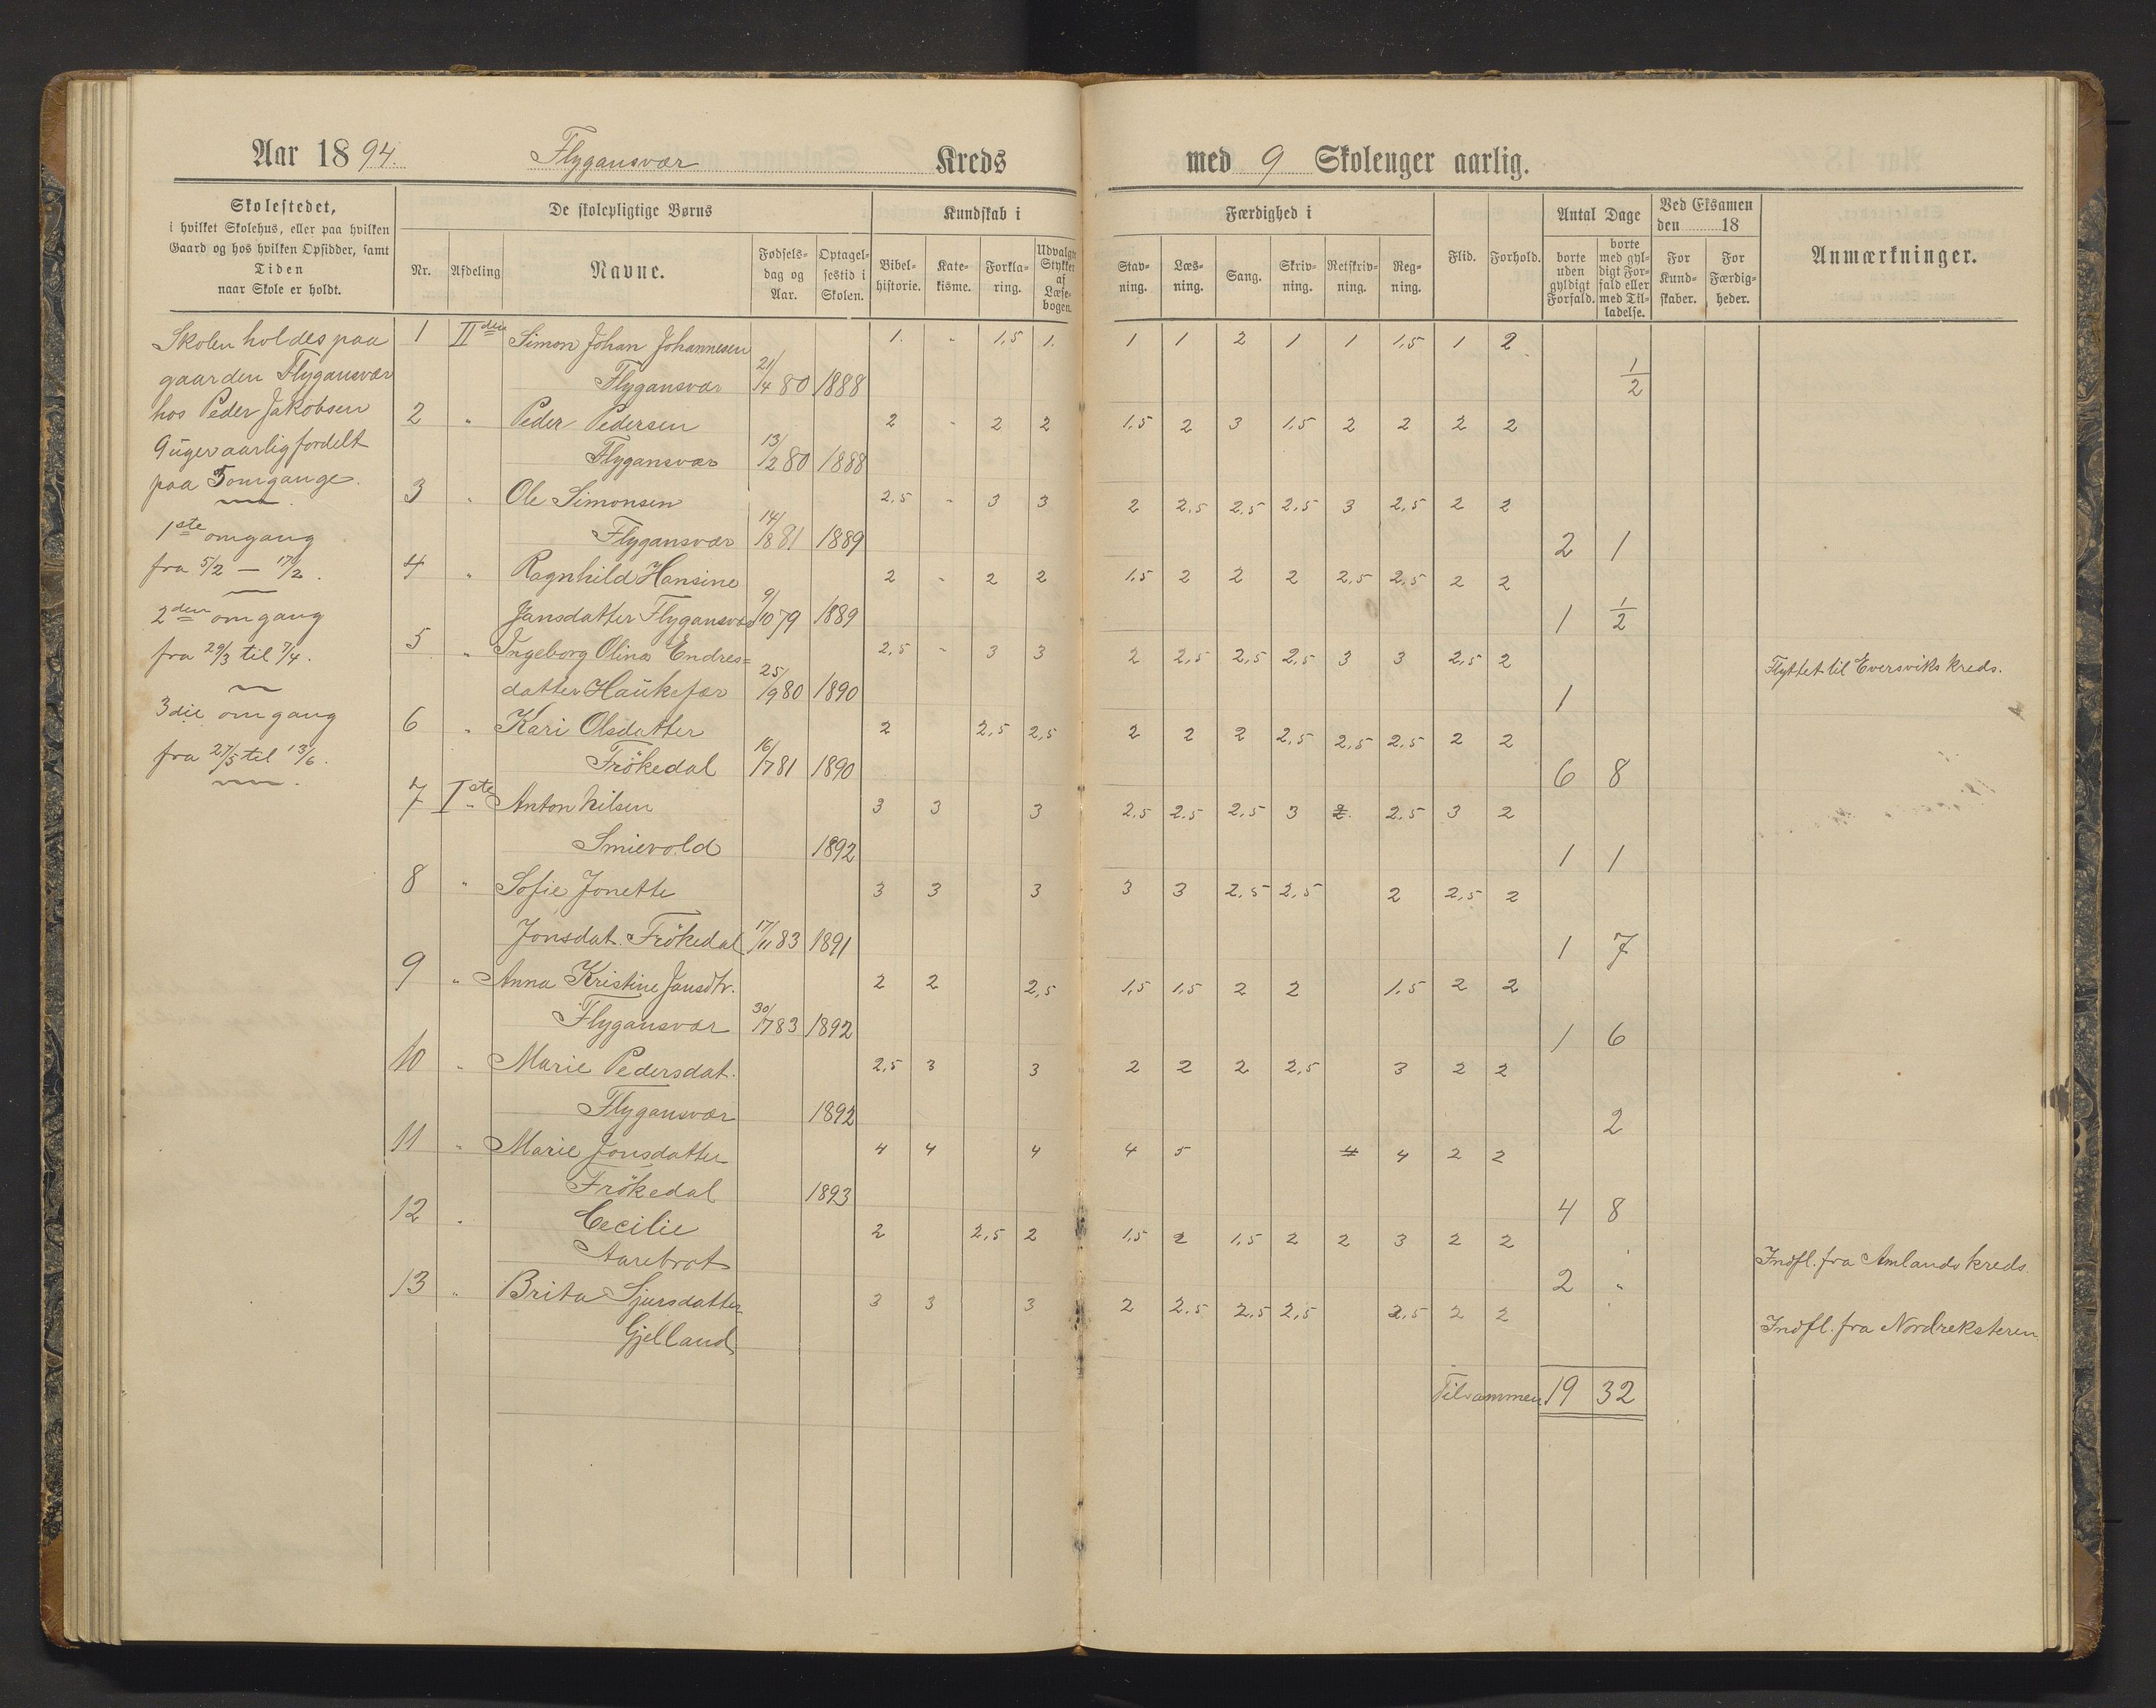 Aar 1894. Flygansvær Kreds med 9 Skolenger aarlig.
Skolestedet,
i hvilket Skolehus, eller paa hvilken
Gaard og hos hvilken Opsidder, samt
Tiden
naar Skole er holdt.
De skolepligtige Børns
Nr. Afdeling Navne. Fødsels-dag og Aar. Optagel-sestid i Skolen.
Kundskab i
Bibel-historie. Kate-kisme. Forkla-ring. Udvalgte Stykker af Læse-bogen.
Færdighed i
Stav-ning. Læs-ning. Sang. Skriv-ning. Retskriv-ning. Reg-ning.
Flid. Forhold.
Antal Dage
borte uden gyldigt Forfald. borte med gyl-digt For-fald eller med Til-ladelse.
Ved Eksamen
den 18
For Kund-skaber. For Færdig-heder.
Anmærkninger.
Skolen holdes paa
gaarden Flygansvær
hos Peder Jakobsen
9 uger aarlig fordelt
paa 3 omgange.
1ste omgang
fra 5/2 — 17/2.
2den omgang
fra 29/3 til 7/4.
3die omgang
fra 27/5 til 13/6.
1 IIden Simon Johan Johannesen 1. - 1,5 1. 1 1 2 1 1 1,5 1 2
Flygansvær 21/4 80 1888 1/2
2 " Peder Pedersen 2 - 2 2 1,5 2 3 1,5 2 2 2 2
Flygansvær 13/2 80 1888
3 " Ole Simonsen 2,5 - 3 3 2 2,5 2,5 2,5 3 2,5 2 2
Flygansvær 14/8 81 1889 2 1
4 " Ragnhild Hansine 2 - 2 2 1,5 2 2 2 2,5 2,5 2 2
Jansdatter Flygansvær 9/10 79 1889 1 1/2
5 " Ingeborg Olina Endres= 2,5 - 3 3 2 2,5 2,5 2,5 3 3 2,5 2 Flyttet til Eversviks kreds.
datter Haukefær 25/9 80 1890 1
6 " Kari Olsdatter 2 2,5 2,5 2 2 2 2,5 2,5 2,5 2 2
Frökedal 16/7 81 1890 6 8
7 Iste " Anton Nilsen 3 3 3 2,5 2,5 2,5 3 2. 2,5 3 2
Smievold 1892 1 1
8 " Sofie Jonette 3 3 3 3 3 2,5 2,5 2 2,5 2
Jonsdat. Frökedal 17/11 83 1891 1 7
9 " Anna Kristine Jansdtr. 2 2 2,5 1,5 1,5 2 2 1,5 2 2
Flygansvær 30/7 83 1892 1 6
10 " Marie Pedersdat. 2,5 3 3 2 2 2 2,5 3 2 2
Flygansvær 1892 2
11 " Marie Jonsdatter 4 4 4 4 5 4 4 2 2
Frökedal 1893 4 8
12 " Cecilie 2 2,5 2 1,5 2 1,5 2 2 3 2 2
Aarebrot 2 " Indfl. fra Amlands kreds.
13 " Brita Sjursdatter 3 3 3 2 2,5 2,5 2,5 2,5 2 2
Gjelland Indfl. fra Nordreksteren.
Tilsammen 19 32